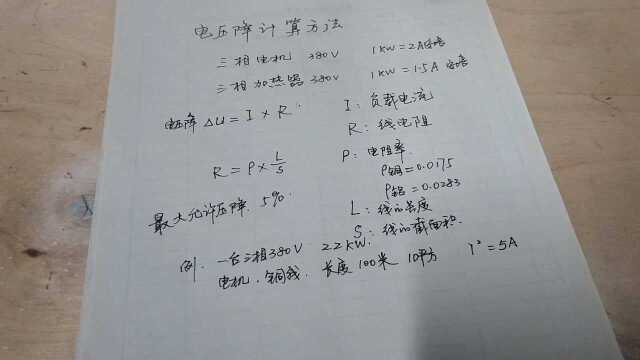 电压降计算方法
三相电机 380V 1KW=2A
三相加热器 380V 1KW=1.5A
电压降 ΔU=I×R
I:负载电流
R:线电阻
R=ρ×L/S
ρ:电阻率
ρ铜=0.0175
ρ铝=0.0283
最大允许压降 5%
L:线的长度
S:线的截面积
例.一台三相380V 22KW.
电机.铜线.长度100米 10平方 1²=5A